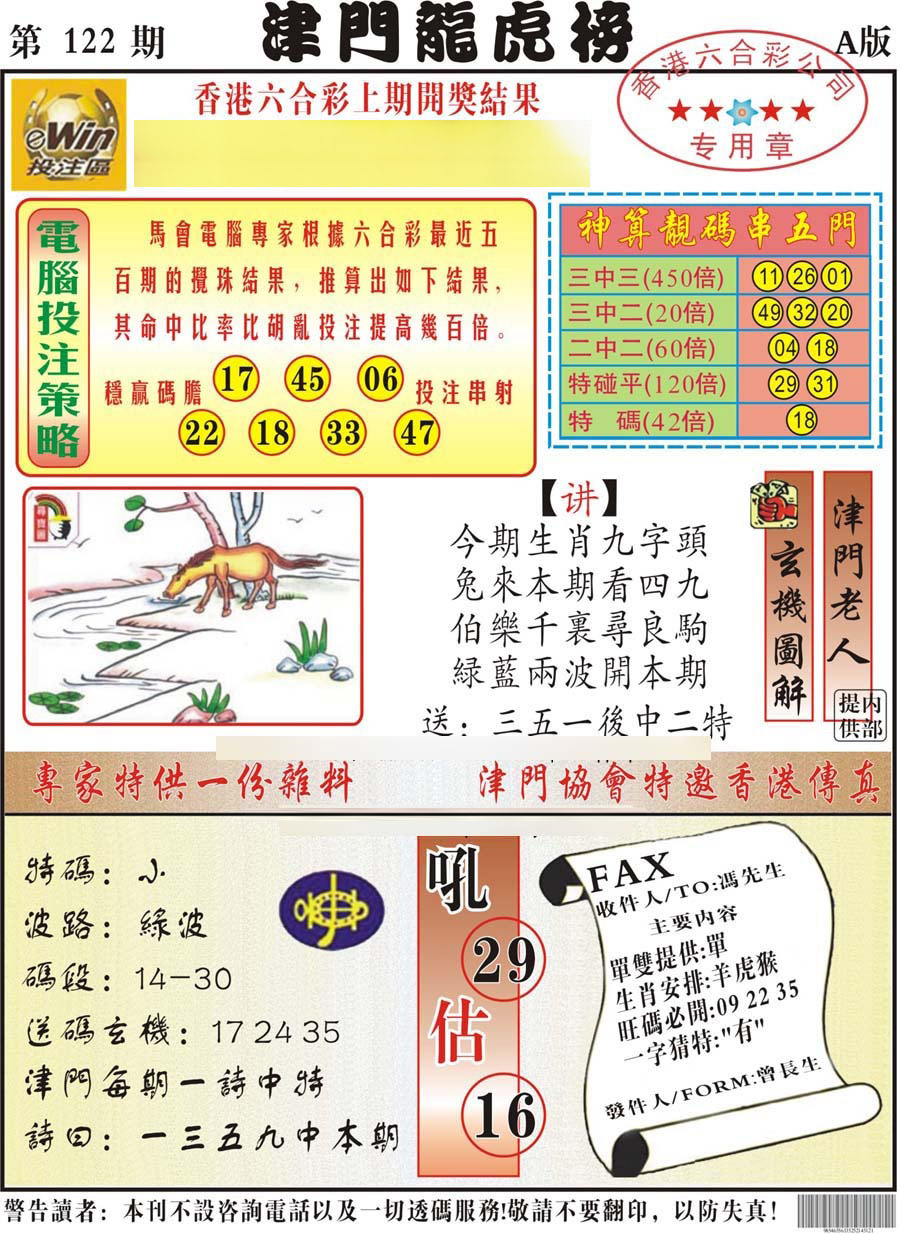 第 122 期
津門龍虎榜
A版
eWin
投注區
香港六合彩上期開獎結果
香港六合彩公司
专用章
電腦投注策略
馬會電腦專家根據六合彩最近五
百期的攪珠結果，推算出如下結果，
其命中比率比胡亂投注提高幾百倍。
穩贏碼膽 17 45 06 投注串射
22 18 33 47
神算靚碼串五門
三中三(450倍) 11 26 01
三中二(20倍) 49 32 20
二中二(60倍) 04 18
特碰平(120倍) 29 31
特 碼(42倍) 18
尋寶圖
【讲】
今期生肖九字頭
兔來本期看四九
伯樂千裏尋良駒
緑藍兩波開本期
送：三五一後中二特
玄機圖解
津門老人
内部提供
專家特供一份雜料
津門協會特邀香港傳真
特碼：小
波路：緑波
碼段：14-30
送碼玄機：17 24 35
津門每期一詩中特
詩曰：一三五九中本期
吼
29
估
16
FAX
收件人/TO:馮先生
主要内容
單雙提供:單
生肖安排:羊虎猴
旺碼必開:09 22 35
一字猜特:"有"
發件人/FORM:曾長生
警告讀者：本刊不設咨詢電話以及一切透碼服務!敬請不要翻印，以防失真！